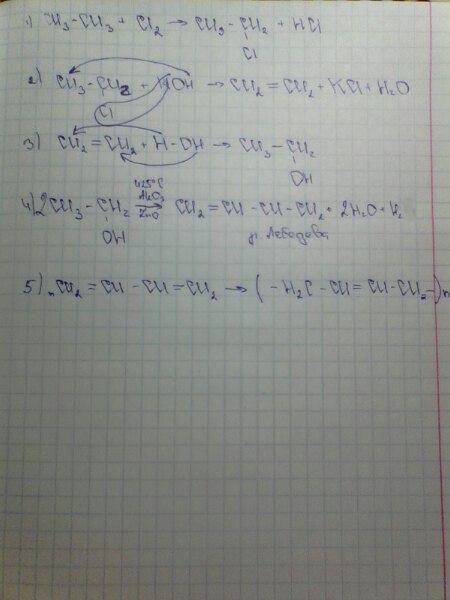 1) CH3-CH3 + Cl2 → CH3-CH2 + HCl
Cl
2) CH3-CH2 + KOH → CH2=CH2 + KCl + H2O
Cl
3) CH2=CH2 + H-OH → CH3-CH2
OH
425°C
4) 2CH3-CH2 Al2O3 → CH2=CH-CH-CH2 + 2H2O + H2
OH ZnO р. Лебедева
5) nCH2=CH-CH=CH2 → (-H2C-CH=CH-CH2-)n